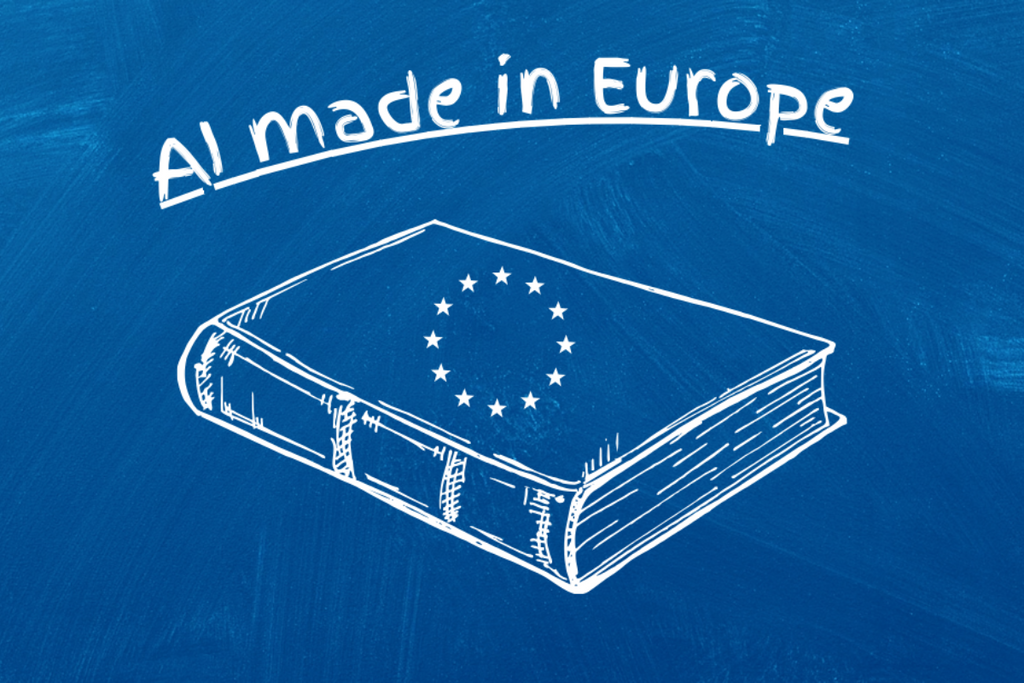 AI made in Europe